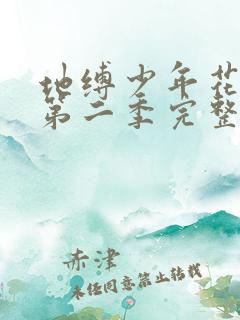 地缚少年花
第二季完整
赤津
未经同意禁止转载